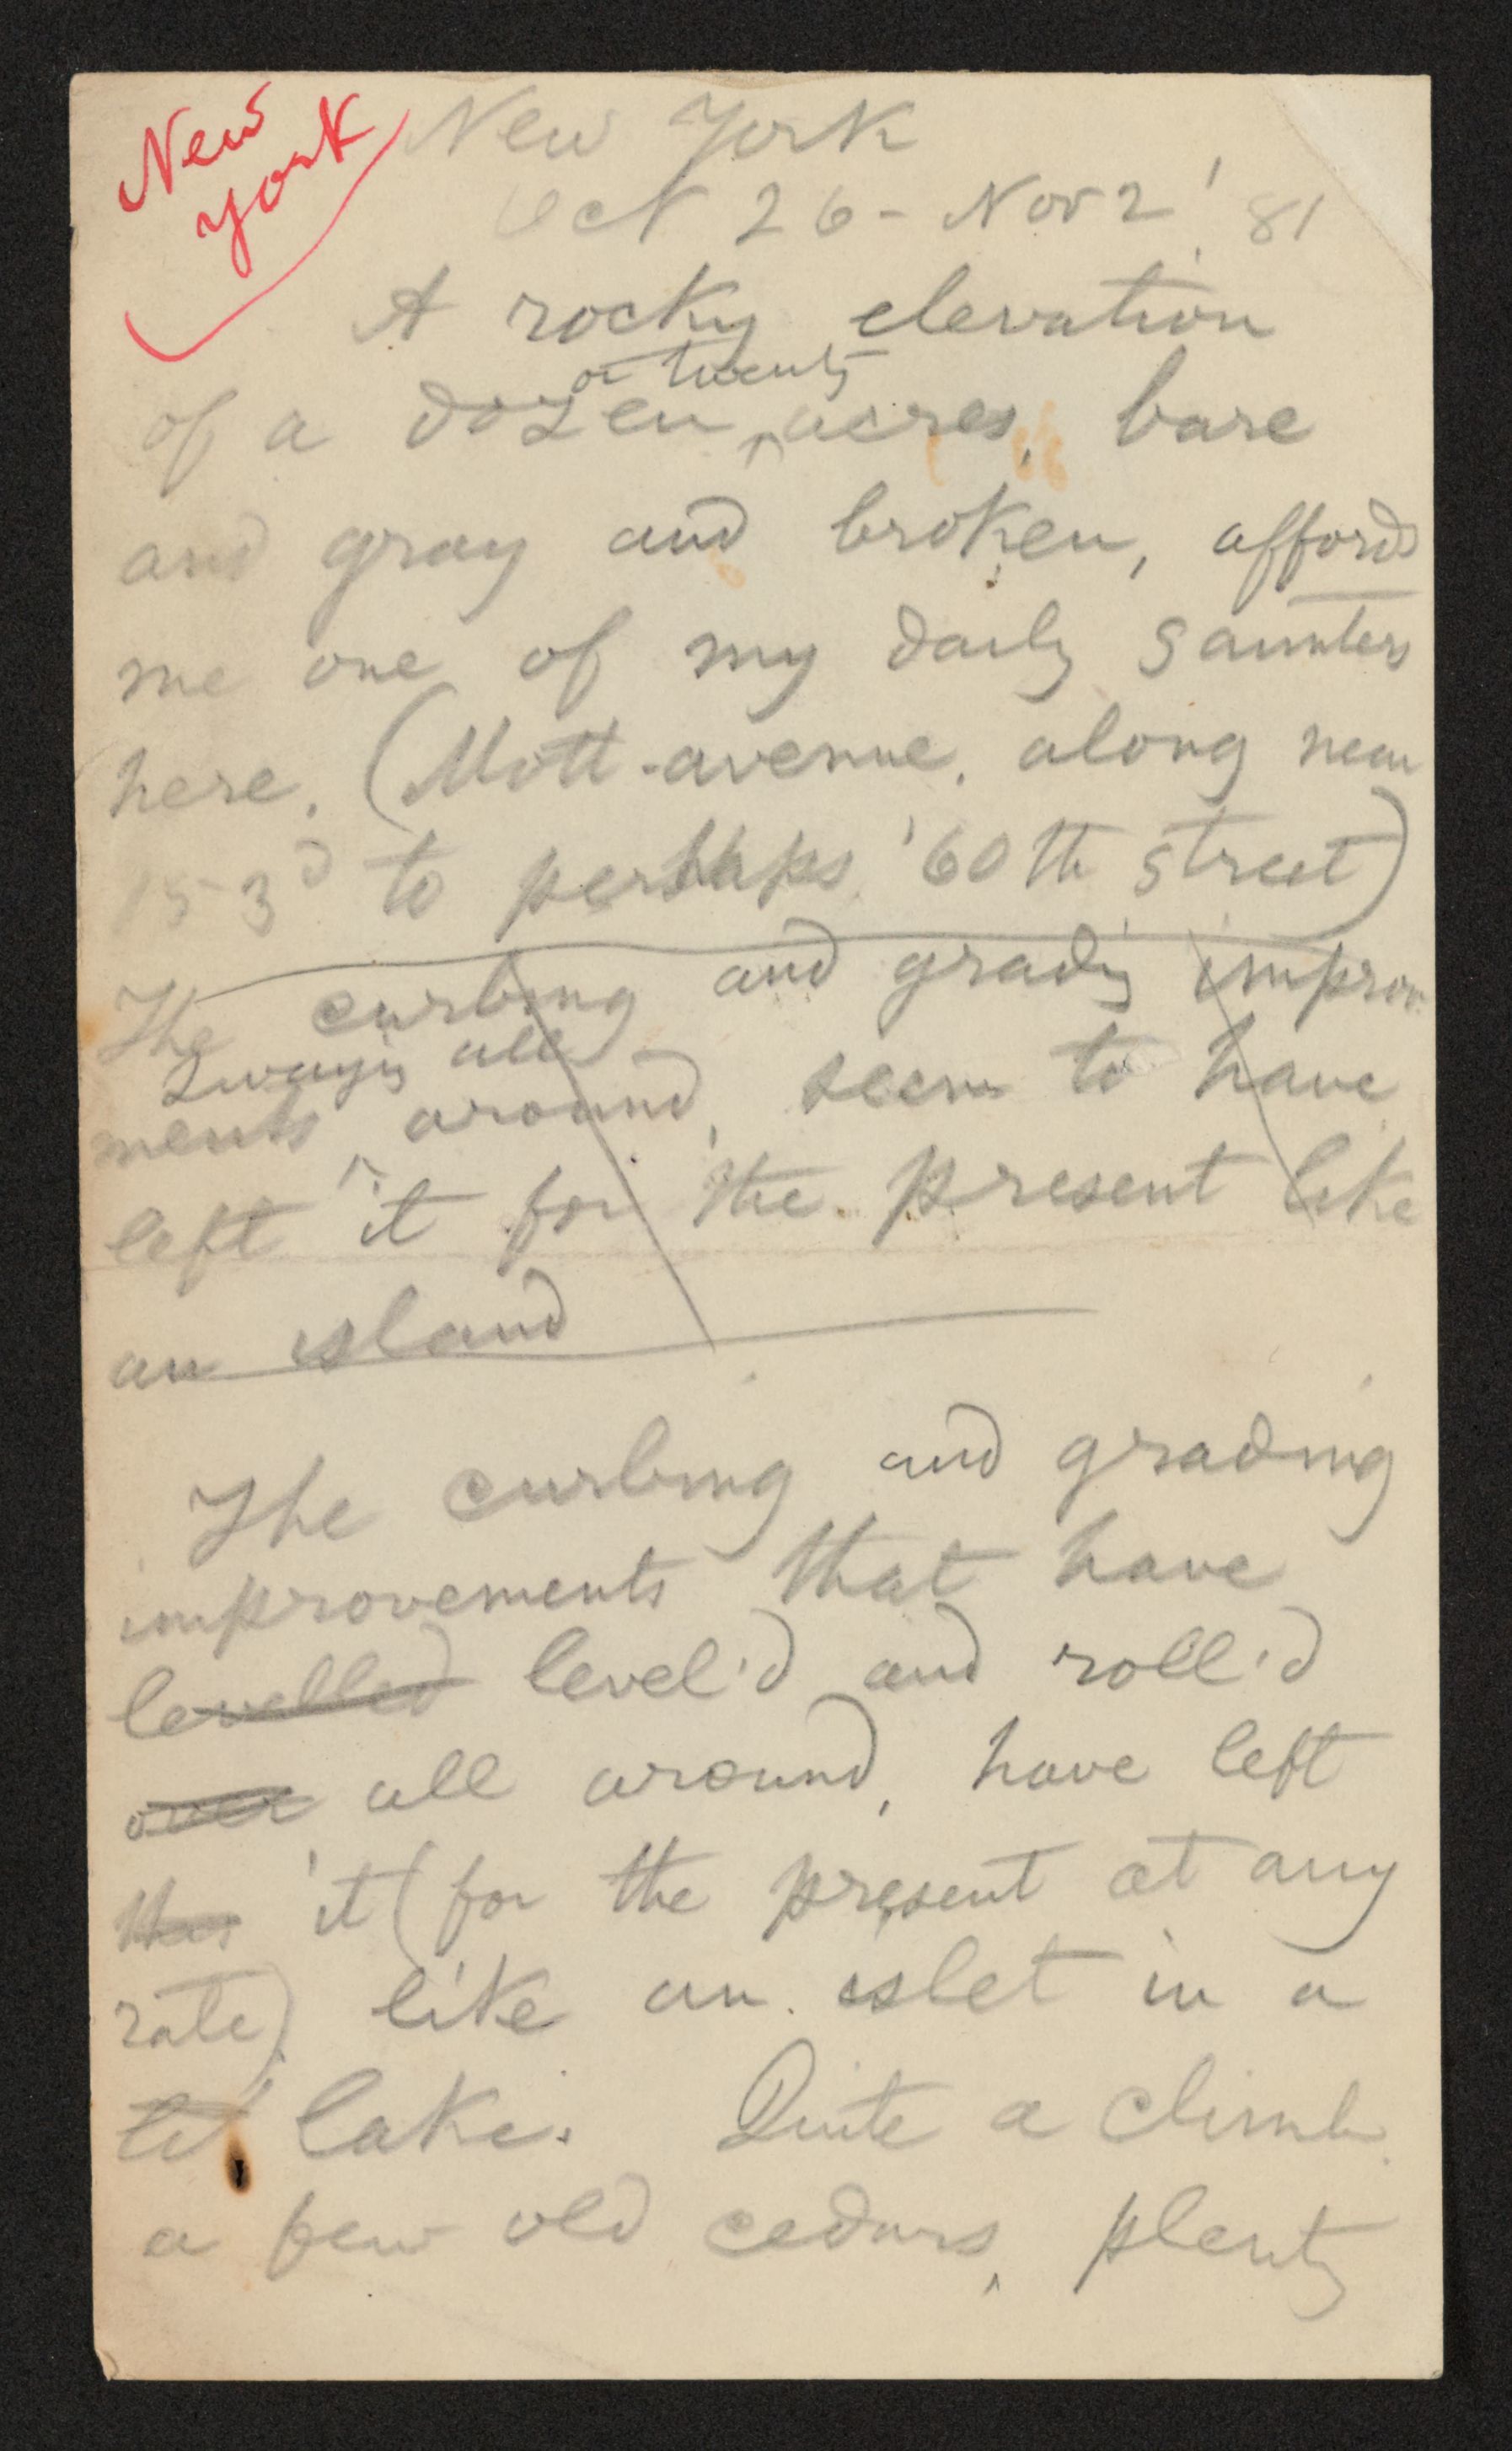 New
York
New York
Oct 26 - Nov 2 '81
A rocky elevation
or twenty
of a dozen ^ acres, bare
and gray and broken, affords
me one of my daily saunters
here. (Mott-avenue, along near
153d to perhaps '60th street)
The curbing and grading improve
all
ments ^ around, seem to have
left it for the present like
an island
The curbing and grading
improvements that have
levelled level'd and roll'd
over all around, have left
this it (for the present at any
rate) like an islet in a
lake. Quite a climb
a few old cedars, plenty